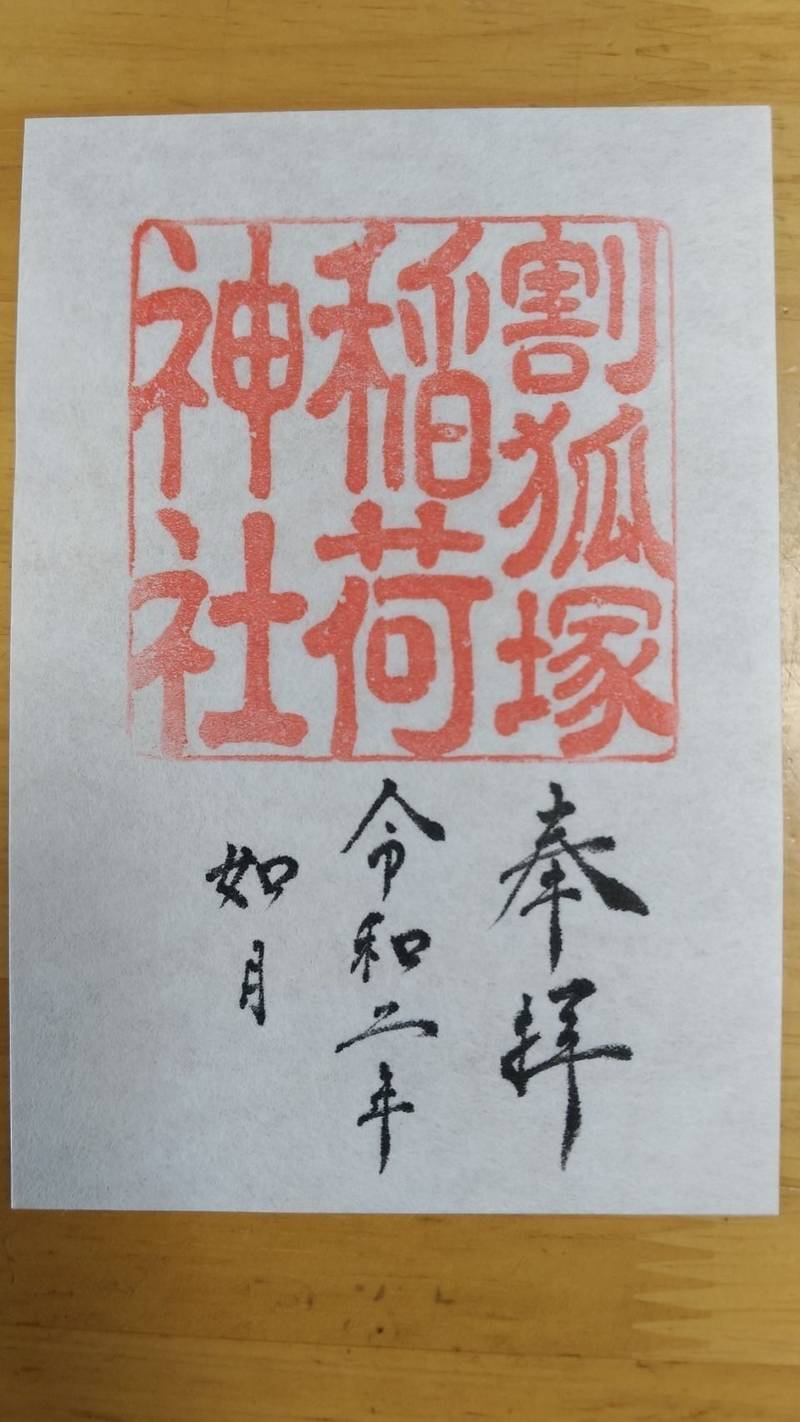 割狐塚
稲荷
神社
奉拝
令和二年
如月